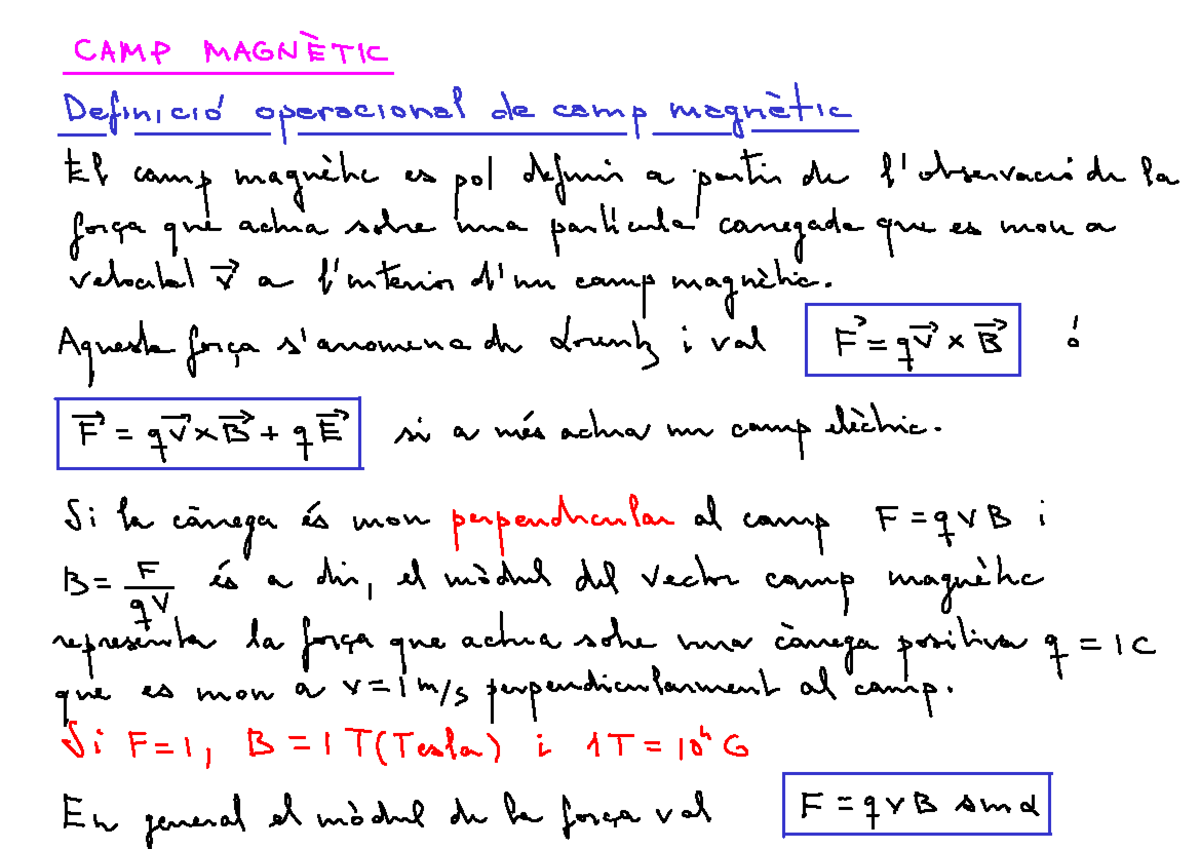 CAMP MAGNÈTIC
Definició operacional de camp magnètic
El camp magnètic es pot definir a partir de l'observació de la
força que actua sobre una partícula carregada que es mou a
velocitat v⃗ a l'interior d'un camp magnètic.
Aquesta força s'anomena de Lorentz i val F⃗ = qv⃗ × B⃗ ó
F⃗ = qv⃗ × B⃗ + qE⃗ si a més actua un camp elèctric.
Si la càrrega és mou perpendicular al camp F = qvB i
B = F/qv és a dir, el mòdul del vector camp magnètic
representa la força que actua sobre una càrrega positiva q = 1C
que es mou a v = 1 m/s perpendicularment al camp.
Si F = 1, B = 1 T (Tesla) i 1T = 10⁴ G
En general el mòdul de la força val F = qvB sinα